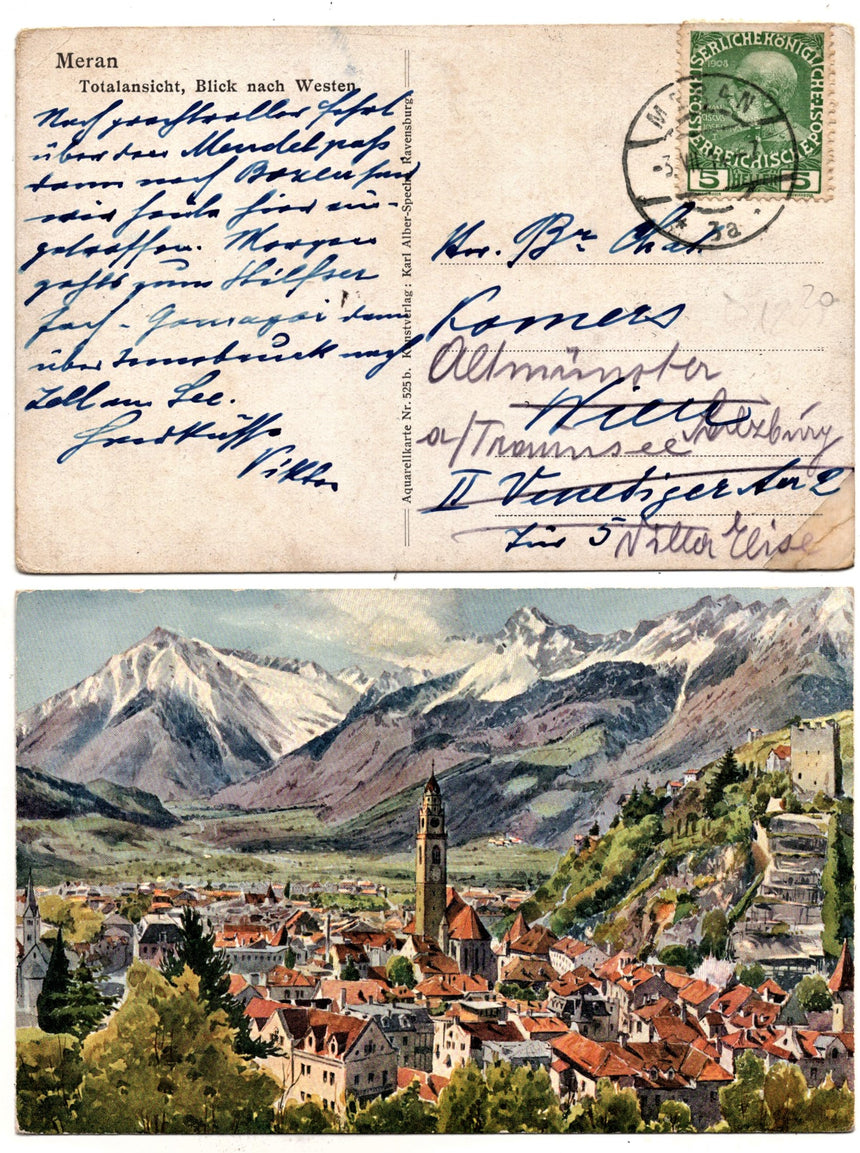 Meran
Totalansicht, Blick nach Westen
Nach prachtvoller Fahrt
über den Mendelpaß
dann nach Bozen sind
wir heute hier ein-
getroffen. Morgen
gehts zum Stilfser
Joch - Gomagoi dann
über Innsbruck nach
Zell am See.
Handküsse
Viktor
Aquarellkarte Nr. 525 b. Kunstverlag: Karl Alber-Specht, Ravensburg
KAISERLICHE KÖNIGLICHE
ÖSTERREICHISCHE POST
1908
5 HELLER 5
MERAN
3a
20
Komers
Altmünster
Wien
a/Traunsee Salzburg
II Venediger Au 2
Tür 5 Villa Elise